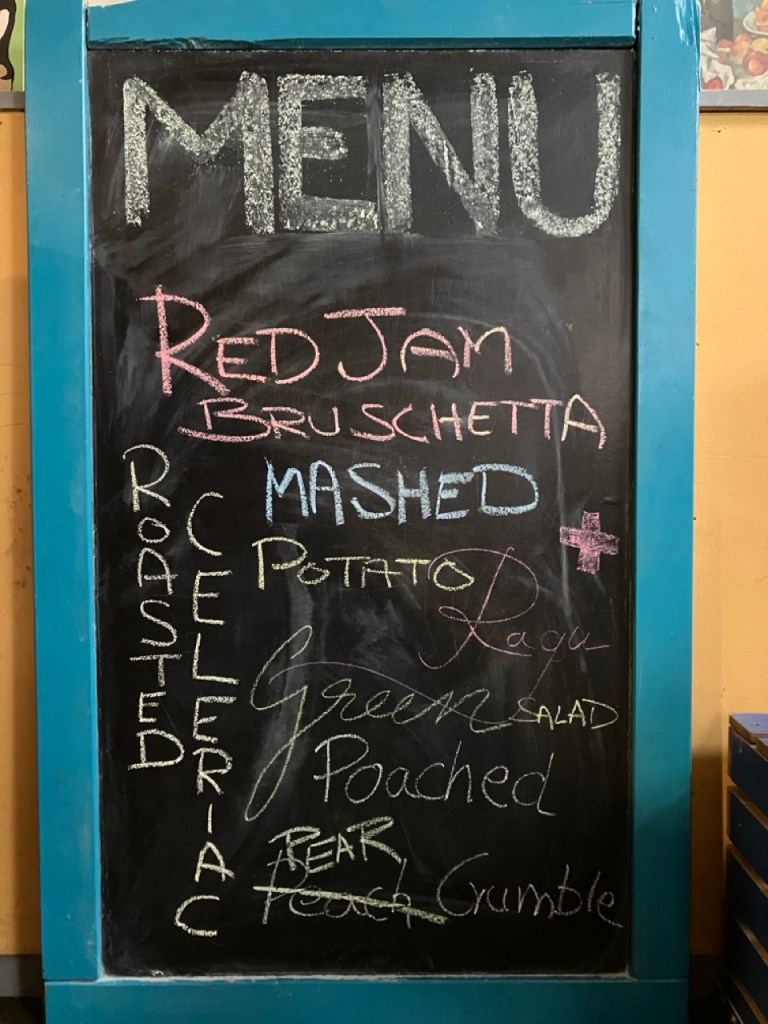 MENU
RED JAM
BRUSCHETTA
ROASTED
CELERIAC
MASHED
+
POTATO
Ragu
Green SALAD
Poached
PEAR
Peach Crumble